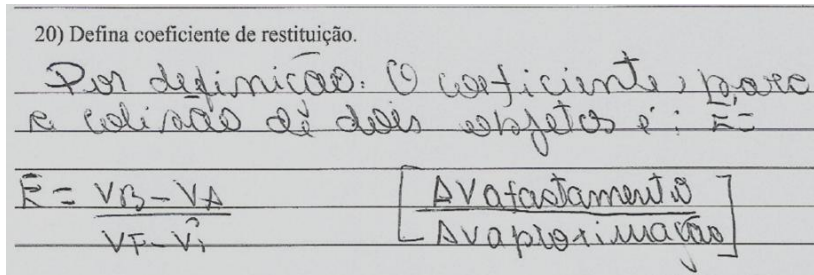 20) Defina coeficiente de restituição.
Por definição: O coeficiente, para
a colisão de dois objetos é: E=
E = VB - VA / VF - Vi [ΔVafastamento / ΔVaproximação]